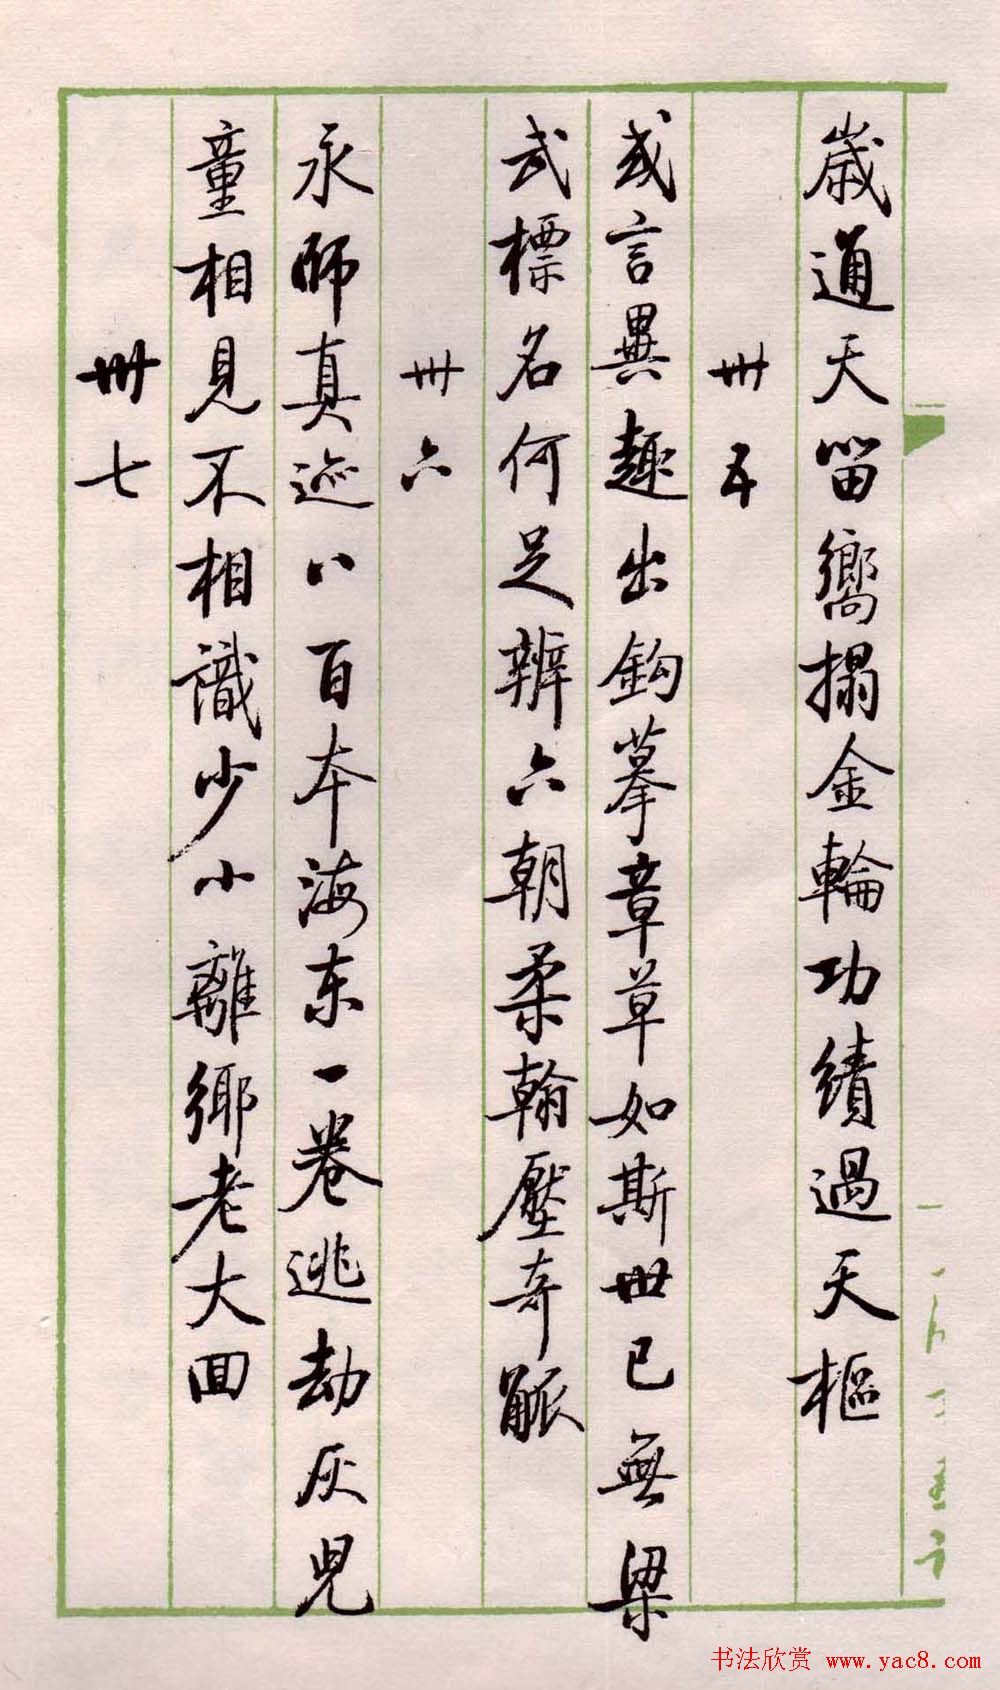 歲通天留嚮搨金輪功績過天樞
卅五
或言異趣出鈎摹章草如斯世已無梁
武標名何足辨六朝柔翰壓奇觚
卅六
永師真迹八百本海东一卷逃劫灰兒
童相見不相識少小離鄉老大回
卅七
书法欣赏 www.yac8.com